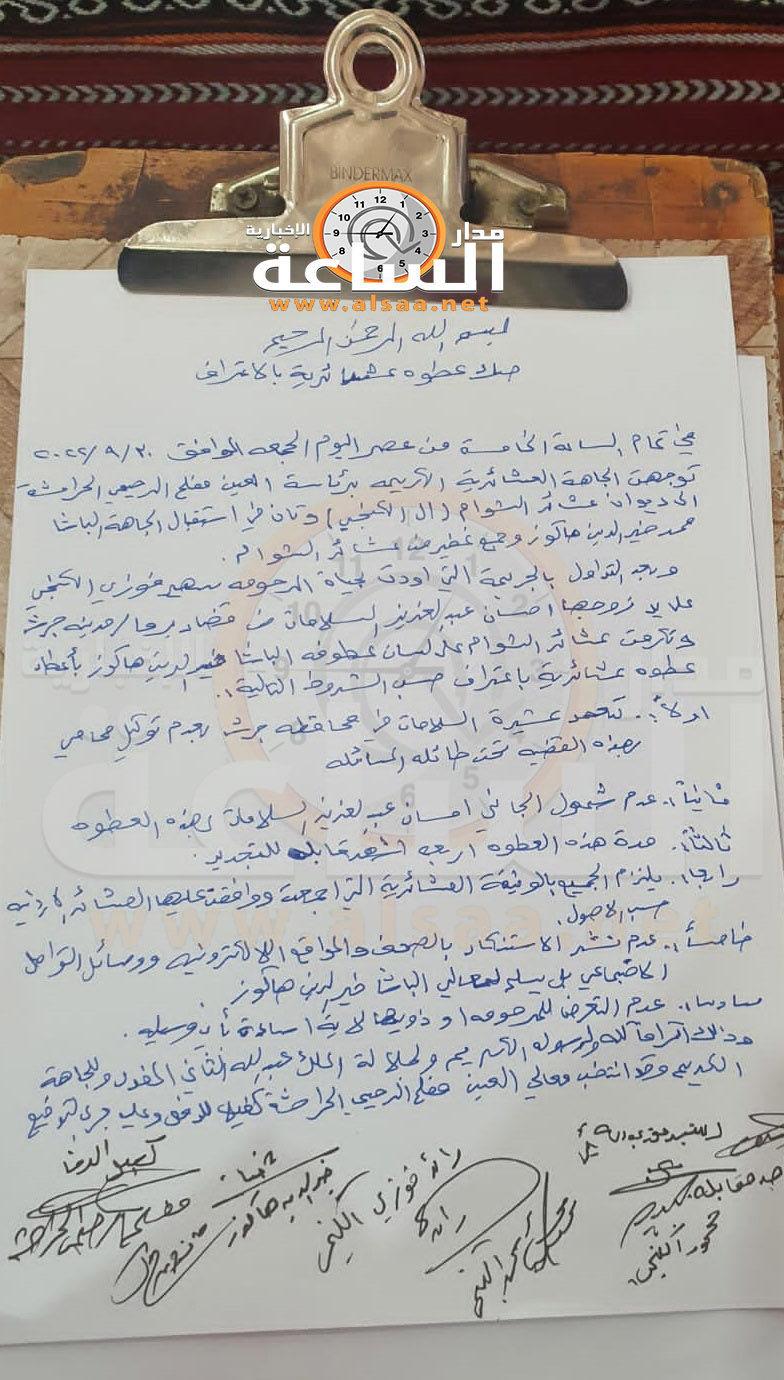 BINDERMAX
مدار الإخبارية
الساعة
www.alsaa.net
بسم الله الرحمن الرحيم
صك عطوه عشائرية بالاعتراف
في تمام الساعة الخامسة من عصر اليوم الجمعه الموافق ٢٠٢٢/٩/٣٠
توجهت الجاهة العشائرية الكريمه برئاسة العين مفلح الرحيمي الحراحشة
الى ديوان عشائر الشوام (ال الكنجي) وكان في استقبال الجاهة الباشا
محمد خير الدين هاكوز وجمع غفير من عشائر الشوام.
وبعد التداول بالجريمة التي اودت بحياة المرحومه سهير فوزي الكنجي
على يد زوجها احسان عبدالعزيز السلامات من مدينه جرش
وتكرمت عشائر الشوام على لسان عطوفه الباشا خير الدين هاكوز بأعطاء
عطوه عشائرية باعتراف حسب الشروط التالية..
اولاً:. تتعهد عشيرة السلامات في محافظه جرش بعدم توكيل محامي
بهذه القضيه تحت طائله المسائله
ثانياً:. عدم شمول الجاني احسان عبدالعزيز السلامات بهذه العطوه
ثالثاً:. مدة هذه العطوه اربعه اشهر قابله للتجديد.
رابعا:. يلتزم الجميع بالوثيقة العشائرية التي اجمعت ووافقت عليها العشائر الاردنيه
حسب الاصول.
خامساً:. عدم نشر الاستنكار بالصحف والمواقع الالكترونيه ووسائل التواصل
الاجتماعي بل يسلم لمعالي الباشا خير الدين هاكوز.
سادسا:. عدم التعرض للمرحومه او ذويها لاية اساءة بأي وسيله.
وذلك اكراما لله ولرسوله الكريم ولجلالة الملك عبدالله الثاني المفدى وللجاهة
الكريمه وقد انتخب معالي العين مفلح الرحيمي الحراحشة كفيلا للدفى وعليه جرى التوقيع
كفيل الدفا
مفلح الرحيمي الحراحشة
خير الدين هاكوز
رائد فوزي الكنجي
محمود الكنجي